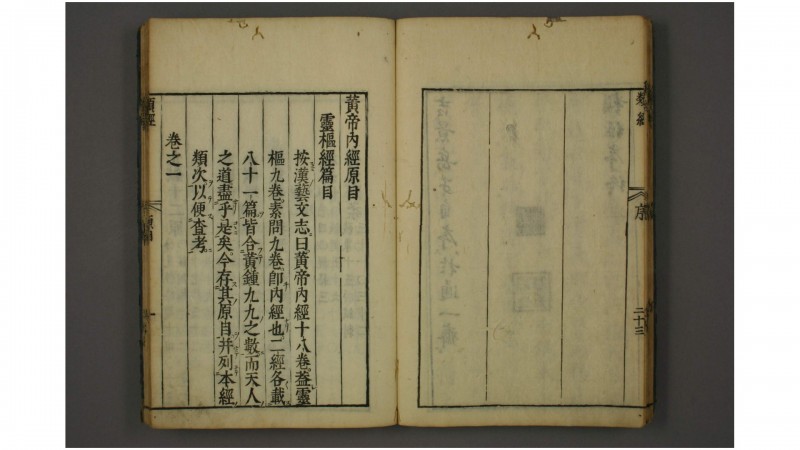 類經
序
二十三
黃帝內經原目
靈樞經篇目
按漢藝文志曰黃帝內經十八卷蓋靈
樞九卷素問九卷卽內經也二經各載
八十一篇皆合黃鍾九九之數而天人
之道盡乎是矣今存其原目并列本經
類次以便查考
卷之一
類經
原目
一